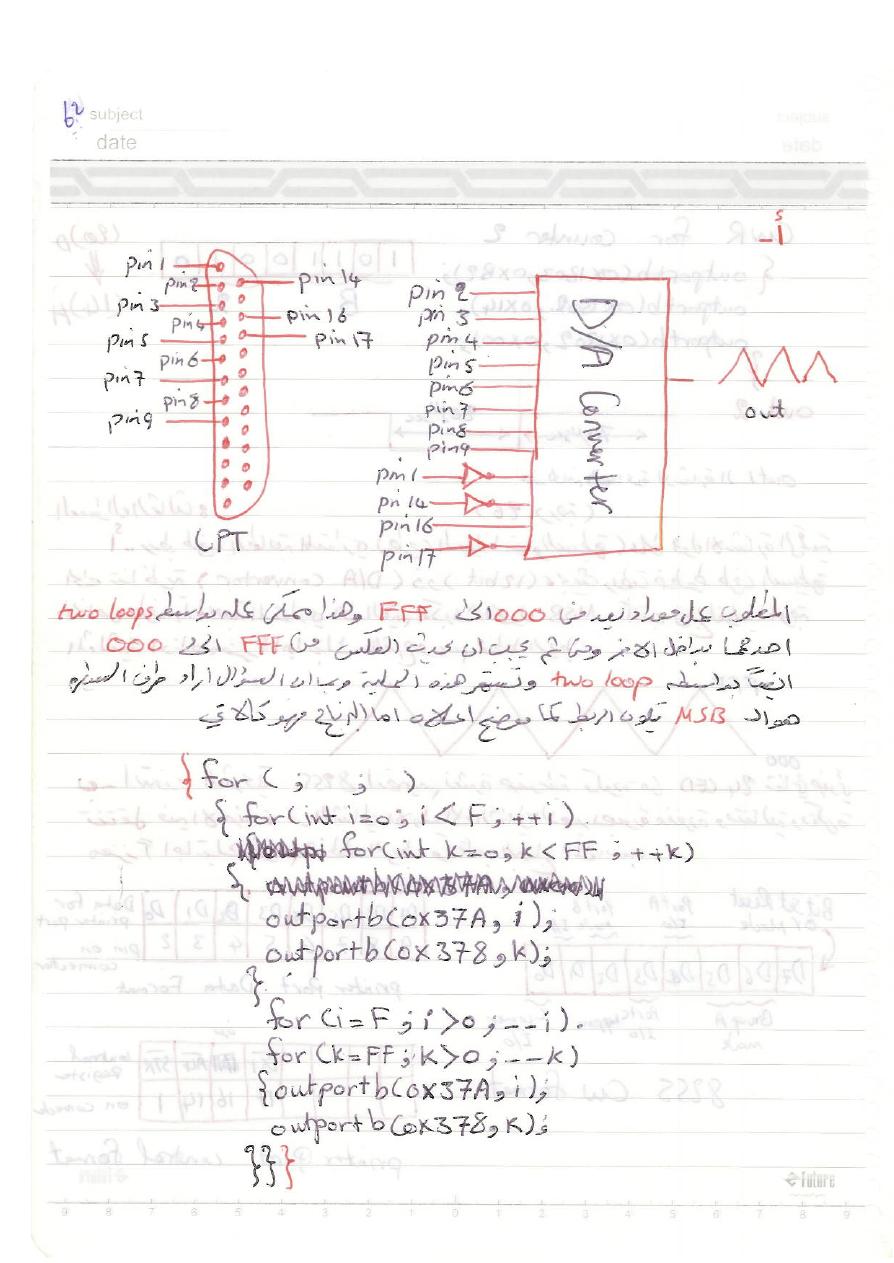 subject
date
pin 1
pin 2
pin 3
pin 4
pin 5
pin 6
pin 7
pin 8
pin 9
pin 14
pin 16
pin 17
LPT
pin 2
pin 3
pin 4
pin 5
pin 6
pin 7
pin 8
pin 9
pin 1
pin 14
pin 16
pin 17
D/A Converter
out
المطلوب عمل عداد يعد من 000 الى FFF وهذا ممكن عمله بواسطه two loops
احدهما بداخل الاخر ومن ثم يجب ان يحدث العكس من FFF الى 000
ايضاً بواسطه two loop وتستمر هذه العملية وبما ان السؤال اراد طرف السيطره
هوالـ MSB يكون الربط كما موضح اعلاه اما البرنامج فهو كالاتي
{ for ( ; ; )
{ for(int i=0; i< F; ++i).
for(int k=0, k<FF ; ++k)
{
outportb(0x37A, i);
outportb(0x378, k);
}
for (i=F ; i>0 ; --i).
for (k=FF; k>0; --k)
{outportb(0x37A, i);
outportb(0x378, k);
}}}
Future
9 8 7 6 5 4 3 2 1 0 1 2 3 4 5 6 7 8 9